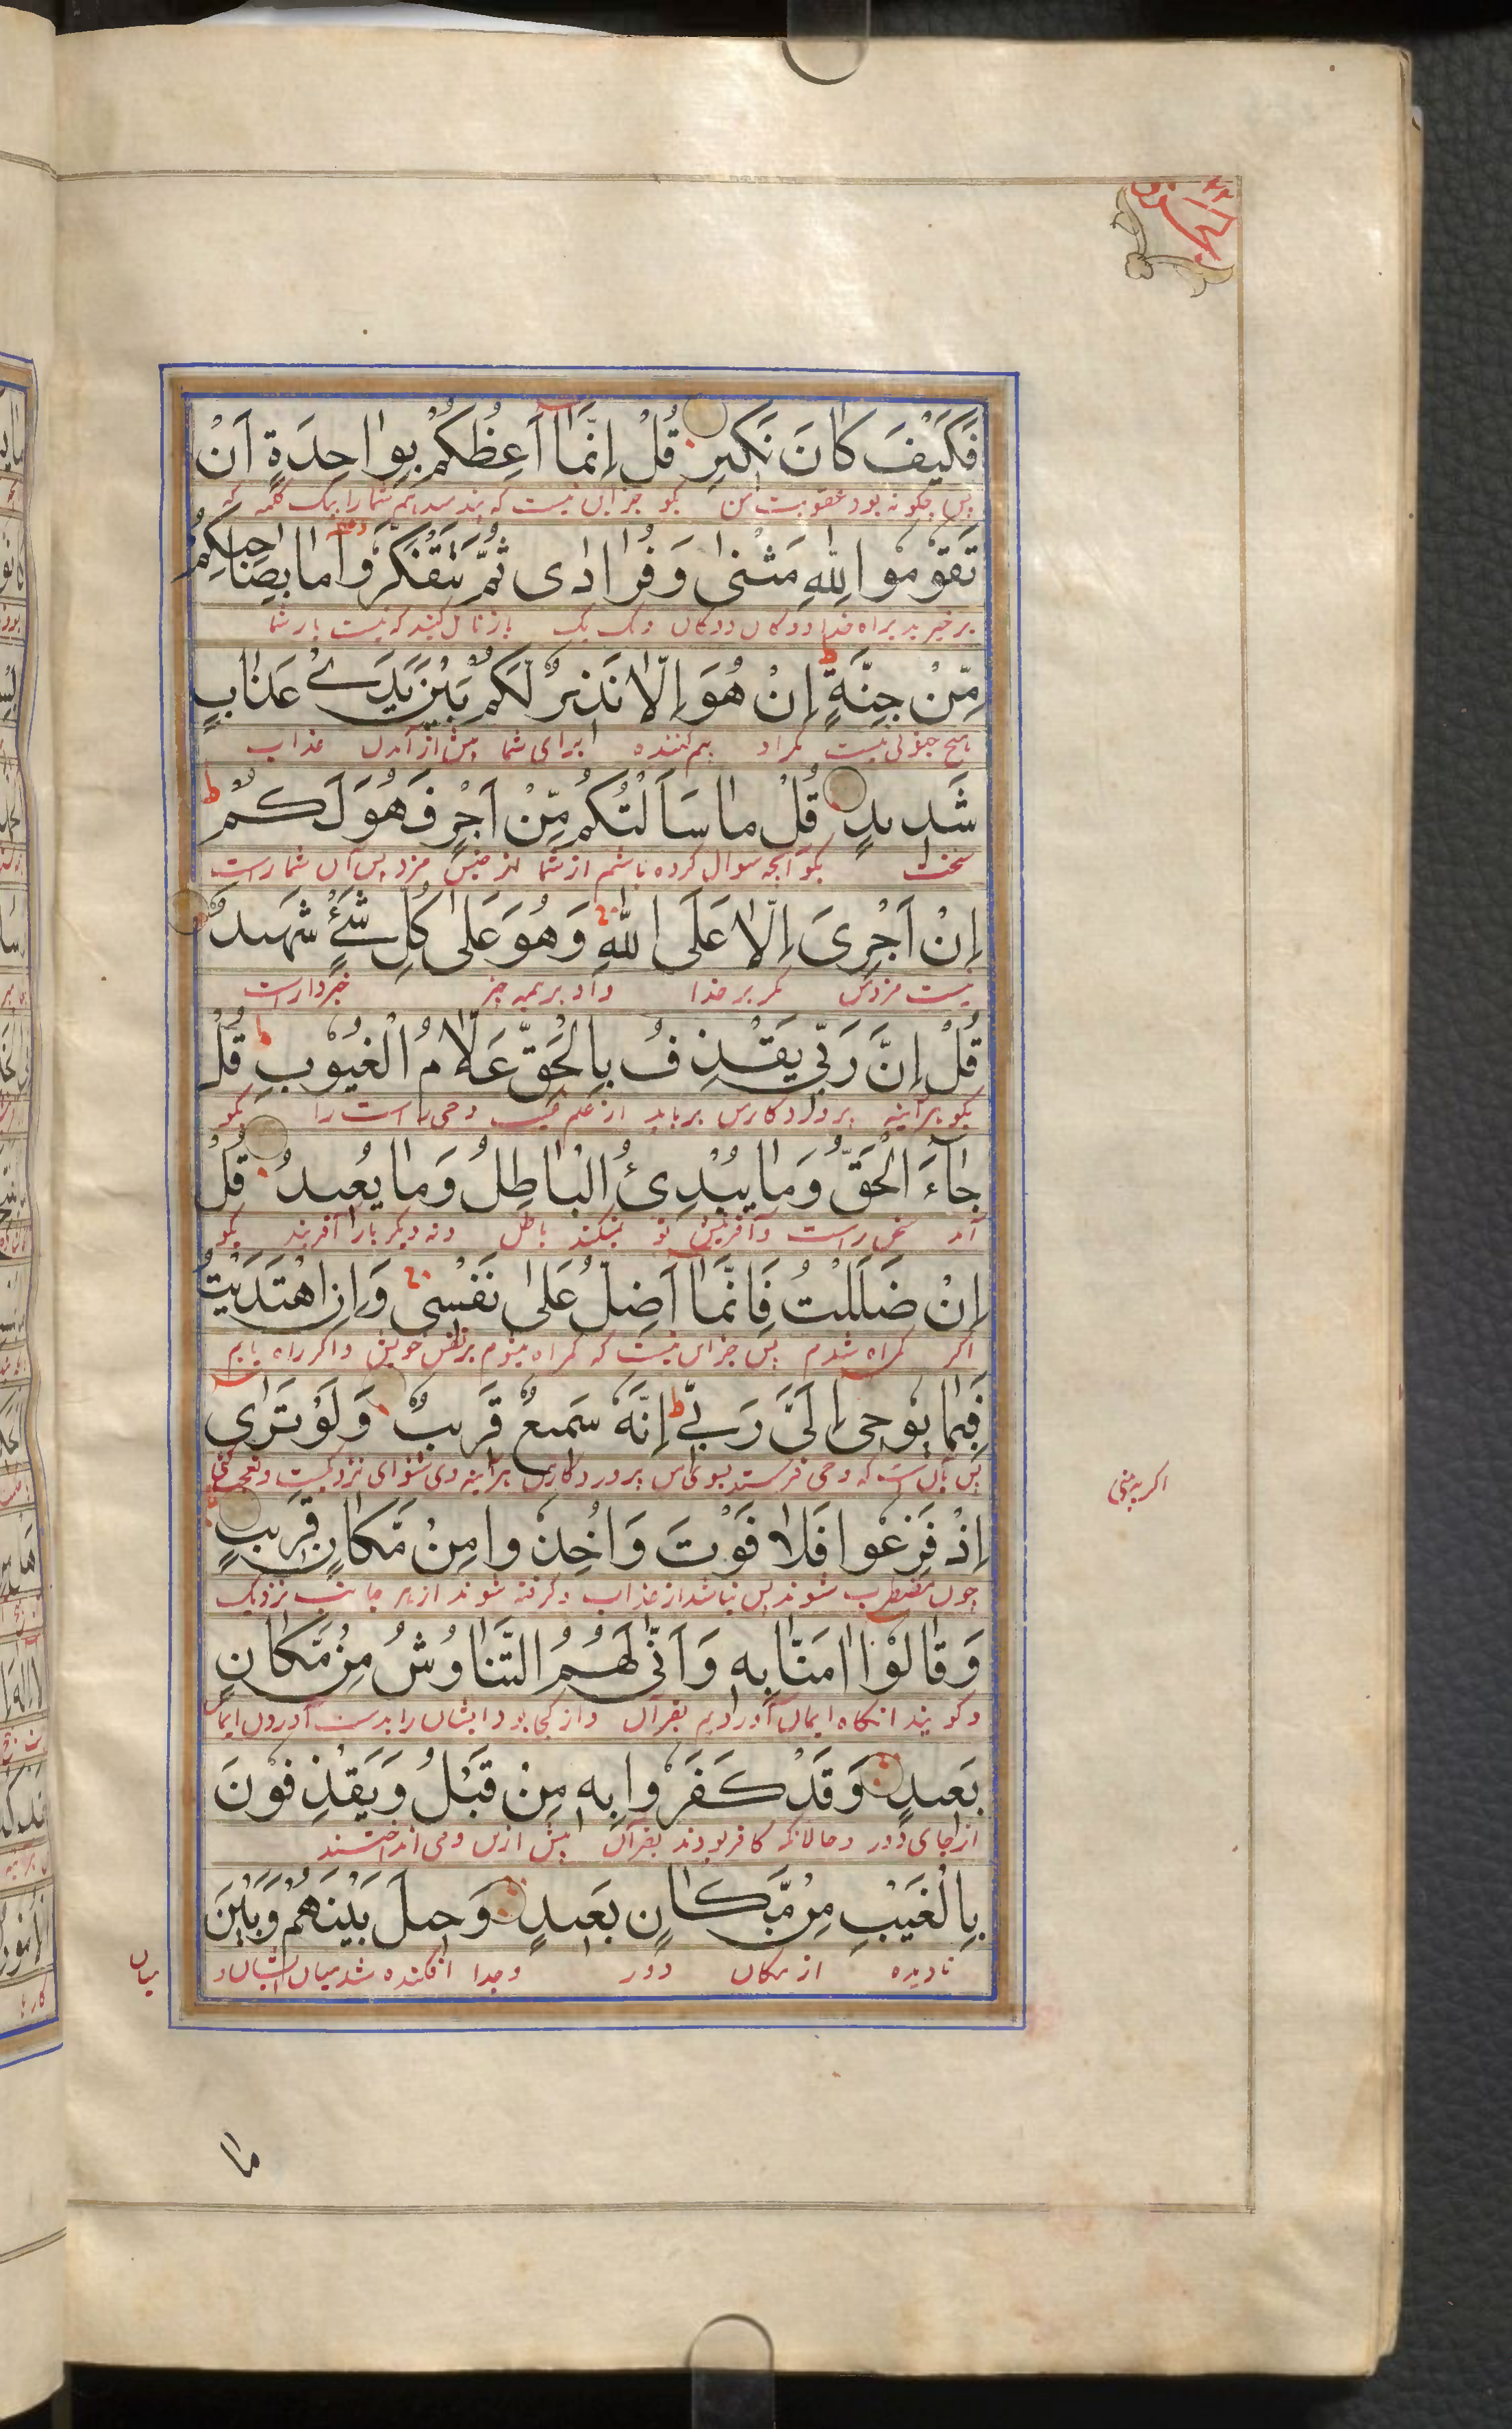 الجزو ٢٢
فَكَيْفَ كَانَ نَكِيرِ قُلْ اِنَّمَا اَعِظُكُمْ بِوَاحِدَةٍ اَنْ
پس چگونه بود عقوبت من بگو جز این نیست که پند میدهم شما را بیک کلمه که
تَقُوْمُوا لِلّٰهِ مَثْنٰى وَفُرَادٰى ثُمَّ تَتَفَكَّرُوا مَا بِصَاحِبِكُمْ
برخیزید براه خدا دوگان دوگان و یک یک باز تامل کنید که نیست بار شما
مِّنْ جِنَّةٍ اِنْ هُوَ اِلَّا نَذِيرٌ لَّكُمْ بَيْنَ يَدَىْ عَذَابٍ
هیچ جنونی نیست مگر او بیم کننده برای شما پیش از آمدن عذاب
شَدِيدٍ قُلْ مَا سَاَلْتُكُمْ مِّنْ اَجْرٍ فَهُوَ لَكُمْ
سخت بگو آنچه سوال کرده باشم از شما از جنس مزد پس آن شما راست
اِنْ اَجْرِىَ اِلَّا عَلَى اللّٰهِ وَهُوَ عَلٰى كُلِّ شَىْءٍ شَهِيدٌ
نیست مزد من مگر بر خدا و او بر همه چیز خبردار است
قُلْ اِنَّ رَبِّى يَقْذِفُ بِالْحَقِّ عَلَّامُ الْغُيُوْبِ قُلْ
بگو هر آینه پروردگار من از علم غیب وحی راست را بگو
جَاءَ الْحَقُّ وَمَا يُبْدِئُ الْبَاطِلُ وَمَا يُعِيدُ قُلْ
آمد سخن راست و آفرینش نو نمیکند باطل و نه دیگر بار آفریند بگو
اِنْ ضَلَلْتُ فَاِنَّمَا اَضِلُّ عَلٰى نَفْسِى وَاِنِ اهْتَدَيْتُ
اگر گمراه شدم پس جز این نیست که گمراه میشوم بر نفس خویش و اگر راه یابم
فَبِمَا يُوْحِى اِلَىَّ رَبِّى اِنَّهُ سَمِيعٌ قَرِيبٌ وَلَوْ تَرٰى
پس بآن است که وحی فرستد بسوی من پروردگار من هر آینه وی شنوای نزدیکست و تعجب کنی
اگر به بینی
اِذْ فَزِعُوا فَلَا فَوْتَ وَاُخِذُوا مِنْ مَّكَانٍ قَرِيبٍ
چون مضطرب شوند پس نباشد از عذاب و گرفته شوند از هر جانب نزدیک
وَقَالُوْا اٰمَنَّا بِهِ وَاَنّٰى لَهُمُ التَّنَاوُشُ مِنْ مَّكَانٍ
و گویند آنگاه ایمان آوردیم بقرآن و از کجا بود ایشان را بدست آوردن ایمان
بَعِيدٍ وَقَدْ كَفَرُوا بِهِ مِنْ قَبْلُ وَيَقْذِفُوْنَ
از جای دور و حالانکه کافر بودند بقرآن پیش ازین و می انداختند
بِالْغَيْبِ مِنْ مَّكَانٍ بَعِيدٍ وَحِيلَ بَيْنَهُمْ وَبَيْنَ
نادیده از مکان دور و جدا افکنده شد میان ایشان و
میان
ما